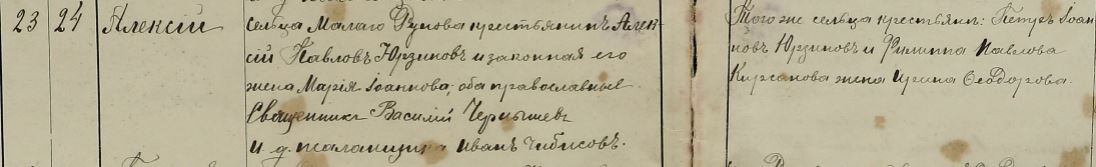 23 24 Алексій
сельца Малаго Рунова крестьянинъ Алек-
сій Павловъ Юрзиновъ и законная его
жена Марія Іоаннова, оба православные
Священникъ Василій Чернышевъ
И. д. псаломщика Иванъ Чибисовъ.
Того же сельца крестьян: Петръ Іоан-
новъ Юрзиновъ и Филиппа Павлова
Кирсанова жена Ирина Ѳеодорова.